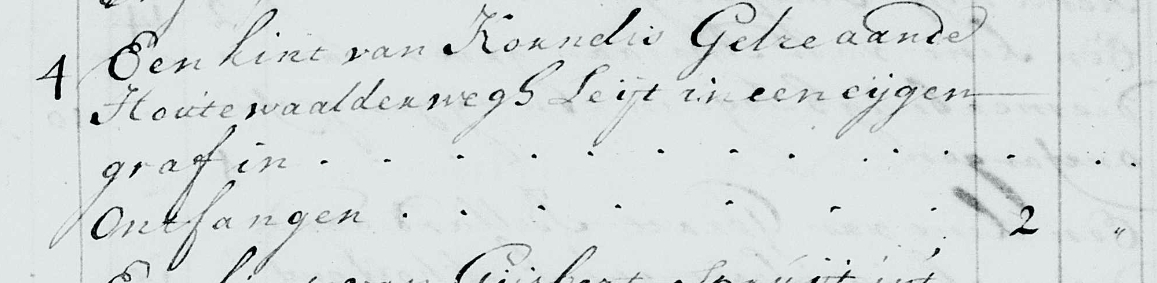 4 Een kint van Kornelis Gelre aande
Houtewaalderwegh Leijt in een eijgen
graf in . . . . . . . . . . . . .
Ontfangen . . . . . . . 2 "
Een kint van Gijsbert Spruijt int